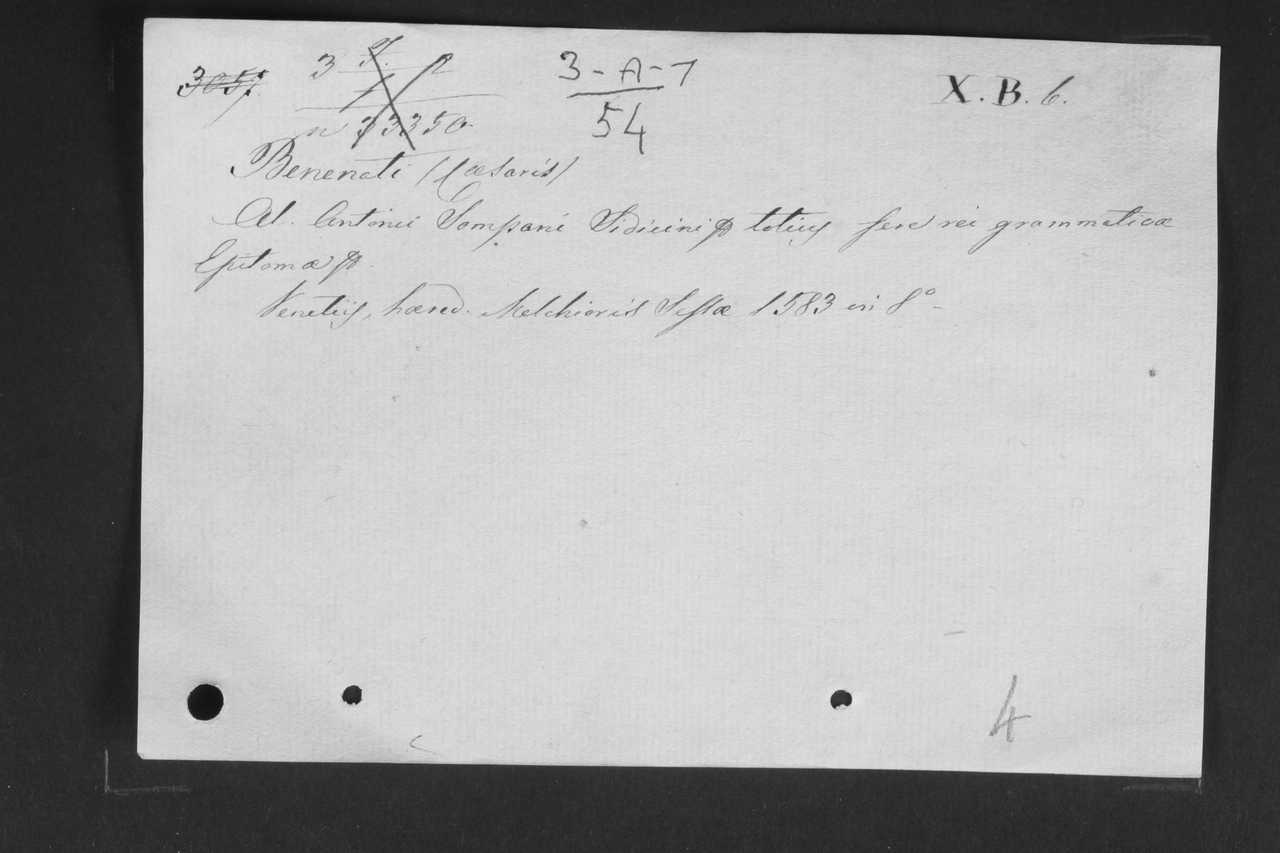 3057.
3 7. 2
1
n 33350
3-A-7
54
X. B. 6.
Benenati (Cæsaris)
Al. Antonii Sompani Sidicini totius fere rei grammaticæ
Epitomæ
Venetiis, hæred. Melchioris Sessæ 1583 in 8º -
4